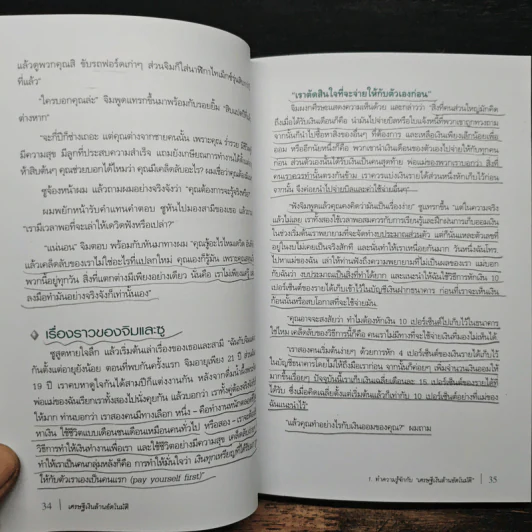 แล้วดูพวกคุณสิ ขับรถฟอร์ดเก่าๆ ส่วนจิมก็ใส่นาฬิกาไทเม็กซ์
ที่แล้ว"
"ใครบอกคุณล่ะ" จิมพูดแทรกขึ้นมาพร้อมกับรอยยิ้ม
ต่างหาก"
"จะกี่ปีก็ช่างเถอะ แต่คุณต่างจากชายคนนั้น เพราะคุณ ร่ำรวย
มีความสุข มีลูกที่ประสบความสำเร็จ แถมยังเกษียณการทำงานได้ตั้งแต่
ห้าสิบต้นๆ คุณช่วยบอกได้ไหมว่า คุณมีเคล็ดลับอะไร?
ซูจ้องหน้าผม แล้วถามผมอย่างจริงจังว่า "คุณต้องการจะรู้จริงหรือ?"
ผมพยักหน้ารับแทนคำตอบ ซูหันไปมองสามีของเธอ แล้ว
"เรามีเวลาพอที่จะเล่าให้เดวิดฟังหรือเปล่า?"
"แน่นอน" จิมตอบ พร้อมกับหันมาทางผม "คุณรู้อะไรไหมเดวิด
แล้วเคล็ดลับของเราไม่ใช่อะไรที่แปลกใหม่ คุณเองก็รู้มัน เพราะคุณสอน
พวกนี้อยู่ทุกวัน สิ่งที่แตกต่างมีเพียงอย่างเดียว นั่นคือ เราไม่เพียงแค่รู้
ลงมือทำมันอย่างจริงจังก็เท่านั้นเอง"
เรื่องราวของจิมและซู
ซูสูดหายใจลึก แล้วเริ่มต้นเล่าเรื่องของเธอและสามี "ฉันกับจิม
กันตั้งแต่อายุยังน้อย ตอนที่พบกันครั้งแรก จิมอายุเพียง 21 ปี
19 ปี เราคบหาดูใจกันได้สามปีก็แต่งงานกัน หลังจาก
พ่อแม่ของฉันเรียกเราทั้งสองไปนั่งคุยกัน แล้วบอกว่า เราทั้งคู่ต้อง
ให้มาก ท่านบอกว่า เราสองคนมีทางเลือก หนึ่ง – คือทำงานหนัก
หาเงิน ใช้ชีวิตแบบเดือนชนเดือนเหมือนคนทั่วไป หรือสอง –
วิธีการให้เงินทำงานเพื่อเรา และใช้ชีวิตอย่างมีความสุข เคล็ดลับ
ทำให้เราเป็นคนกลุ่มหลังก็คือ การทำให้มั่นใจว่า เงินทุกเหรียญที่
ให้กับตัวเองเป็นคนแรก (pay yourself first)"
34 | เศรษฐีเงินล้านอัตโนมัติ
"เราตัดสินใจที่จะจ่ายให้กับตัวเองก่อน"
จิมผงกศีรษะแสดงความเห็นด้วย และกล่าวว่า "สิ่งที่คนส่วนใหญ่มักคิด
ถึงเมื่อได้รับเงินเดือนก็คือ นำมันไปจ่ายบิลหรือใบแจ้งหนี้ที่พวกเขาถูกทวงถาม
จากนั้นก็นำไปซื้อหาสิ่งของอื่นๆ ที่ต้องการ และเหลือเงินเพียงเล็กน้อยเพื่อ
ออม หรืออีกนัยหนึ่งก็คือ พวกเขานำเงินเดือนของตัวเองไปจ่ายให้กับทุกคน
ก่อน ส่วนตัวเองนั้นได้รับเงินเป็นคนสุดท้าย พ่อแม่ของพวกเราบอกว่า สิ่งที่
คนเราควรทำนั้นตรงกันข้าม เราควรแบ่งเงินรายได้ส่วนหนึ่งหักเก็บไว้ก่อน
จากนั้น จึงค่อยนำไปจ่ายบิลและค่าใช้จ่ายอื่นๆ...."
"ฟังจิมพูดแล้วคุณคงคิดว่ามันเป็นเรื่องง่าย" ซูแทรกขึ้น "แต่ในความจริง
แล้วไม่เลย เราทั้งสองใช้เวลาพอสมควรกับการเรียนรู้และฝึกฝนการกับออมเงิน
ในช่วงเริ่มต้นเราพยายามที่จะทำงบประมาณส่วนตัว แต่ก็นั่นแหละตัวเลขที่
อยู่ในใบไม่เคยเป็นจริงสักที และมันทำให้เราเหนื่อยกันมาก วันหนึ่งฉันโทร
ไปหาแม่ เล่าให้ท่านฟังถึงความพยายามที่ไม่เป็นผลของเรา แม่บอก
กับฉันว่า งบประมาณเป็นสิ่งที่ทำได้ยาก และแนะนำให้ฉันใช้วิธีการหักเงิน 10
เปอร์เซ็นต์ของรายได้ที่ได้รับเข้าไว้ในบัญชีเงินฝากธนาคาร ก่อนที่เราจะเห็นเงิน
ก้อนนั้นหรือมีโอกาสที่จะใช้จ่ายมัน
"คุณอาจจะสงสัยว่า ทำไมต้องหักเงิน 10 เปอร์เซ็นต์ไปเก็บไว้ในธนาคาร
ใช่ไหม เคล็ดลับของวิธีการนี้ก็คือ คนเราไม่มีทางที่จะใช้จ่ายเงินที่มองไม่เห็นได้
"เราสองคนเริ่มต้นง่ายๆ ด้วยการหัก 4 เปอร์เซ็นต์ของเงินรายได้เก็บไว้
ในบัญชีธนาคารโดยไม่ให้ถึงมือเราก่อน จากนั้นก็ค่อยๆ เพิ่มจำนวนเงินออมให้
มากขึ้นเรื่อยๆ ปัจจุบันนี้เราเก็บเงินเฉลี่ยเดือนละ 15 เปอร์เซ็นต์ของรายได้ที่
ได้รับ ซึ่งเมื่อคิดเฉลี่ยตั้งแต่เริ่มต้นแล้วก็เท่ากับ 10 เปอร์เซ็นต์อย่างที่แม่ของ
ฉันแนะนำไว้"
"แล้วคุณทำอย่างไรกับเงินออมของคุณ?" ผมถาม
1. ทำความรู้จักกับ "เศรษฐีเงินล้านอัตโนมัติ" | 35